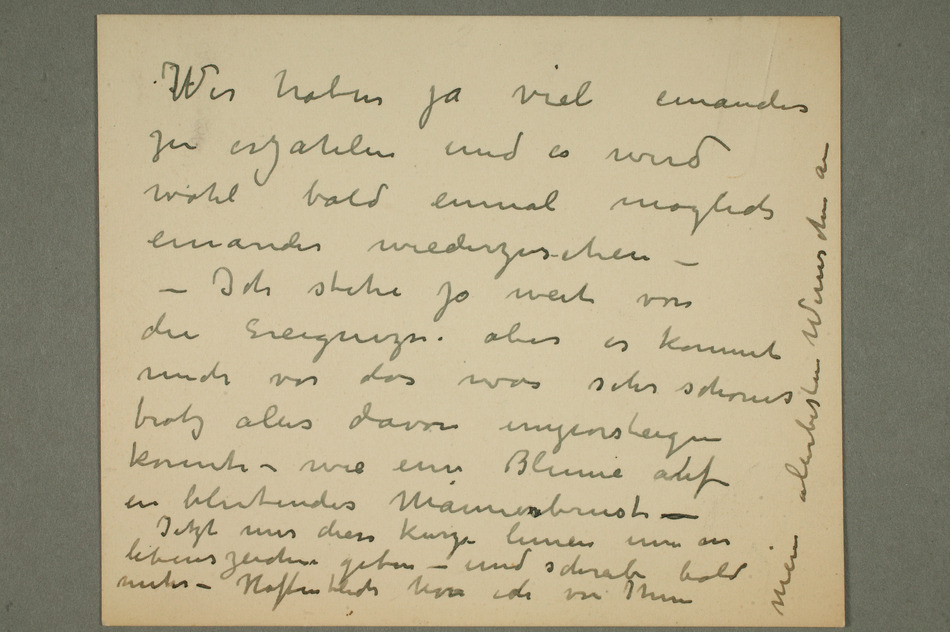 Wir haben ja viel einander
zu erzahlen und es wird
wohl bald einmal moglich
einander wiederzusehen –
– Ich stehe ja weit von
die Ereignizse. aber es kommt
mich vor das was sehr schones
trotz alles davon
konnte – wie eine Blume auf
en blutendes Männerbrust –
Jetzt nur diese kurze linien um an
lebenszeichen geben – und schreibe bald
mehr – Hoffentlich hore ich von Ihnen
Mein allerbesten Wunschen an